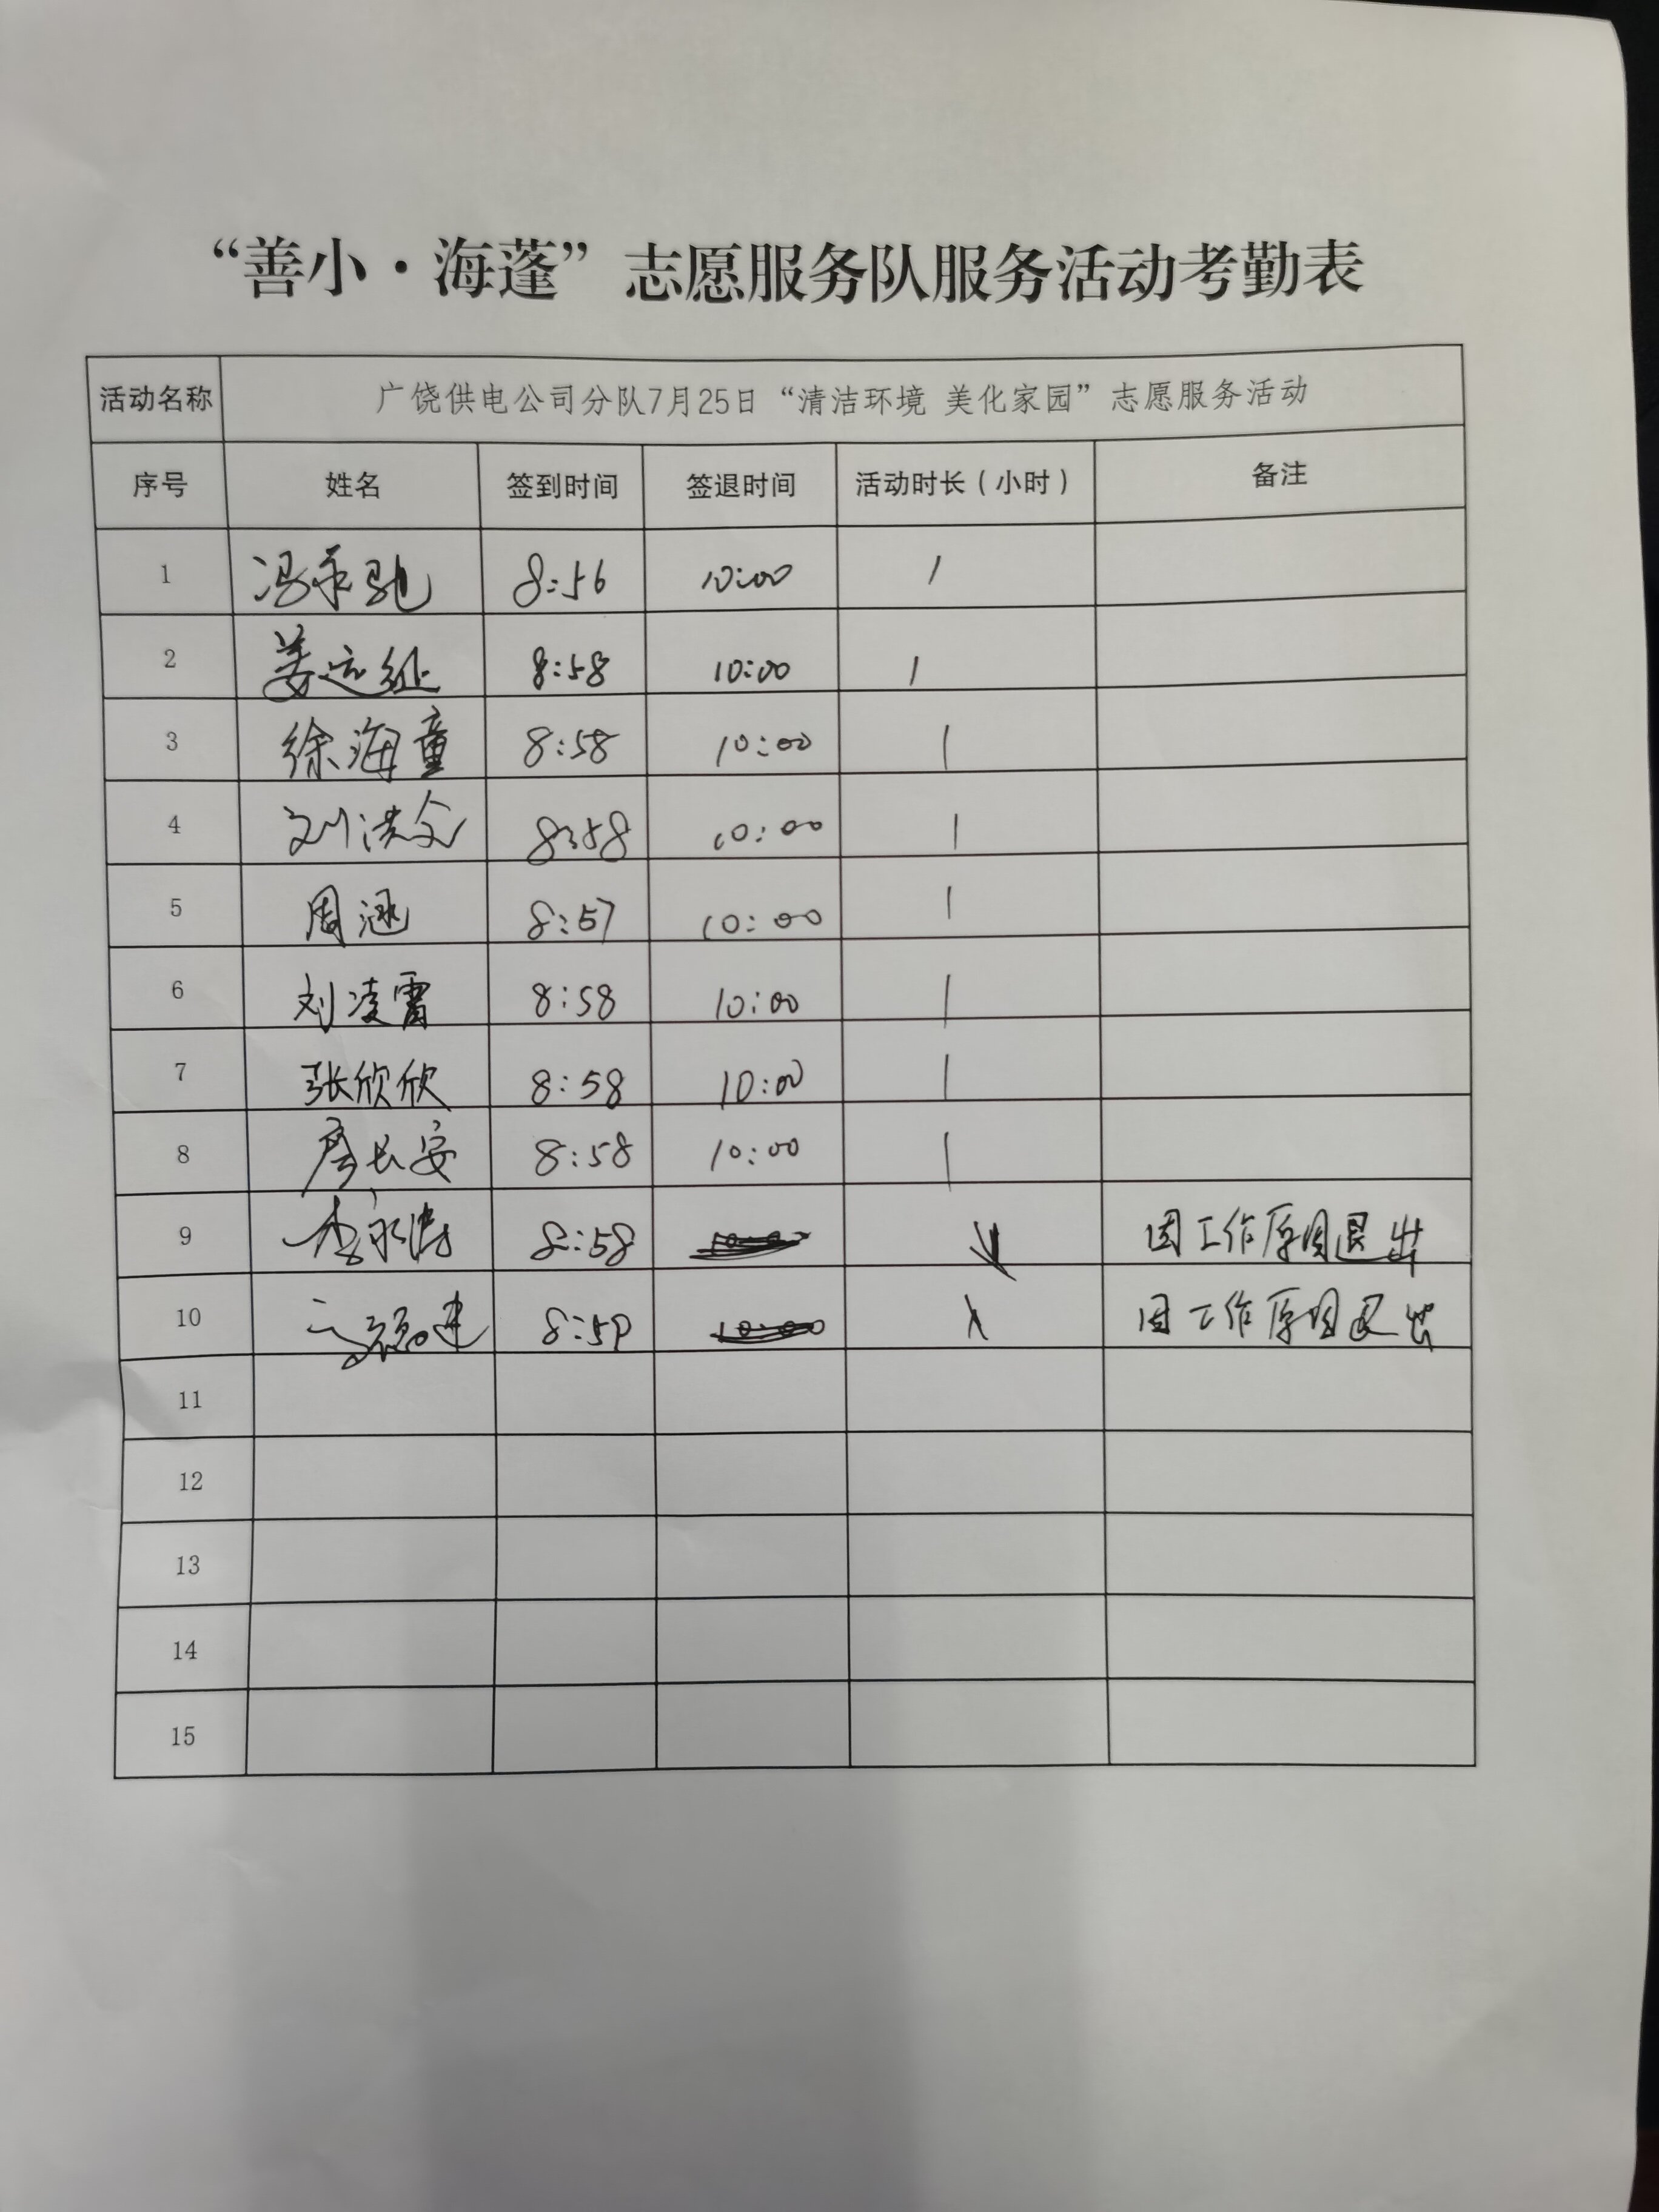 “善小·海蓬”志愿服务队服务活动考勤表
活动名称 广饶供电公司分队7月25日“清洁环境 美化家园”志愿服务活动
序号 姓名 签到时间 签退时间 活动时长（小时） 备注
1 冯承驰 8:56 10:00 1
2 姜远征 8:58 10:00 1
3 徐海童 8:58 10:00 1
4 刘洪文 8:58 10:00 1
5 周涵 8:57 10:00 1
6 刘凌霄 8:58 10:00 1
7 张欣欣 8:58 10:00 1
8 长安 8:58 10:00 1
9 李永涛 8:58 因工作原因退出
10 建 因工作原因退出
11
12
13
14
15